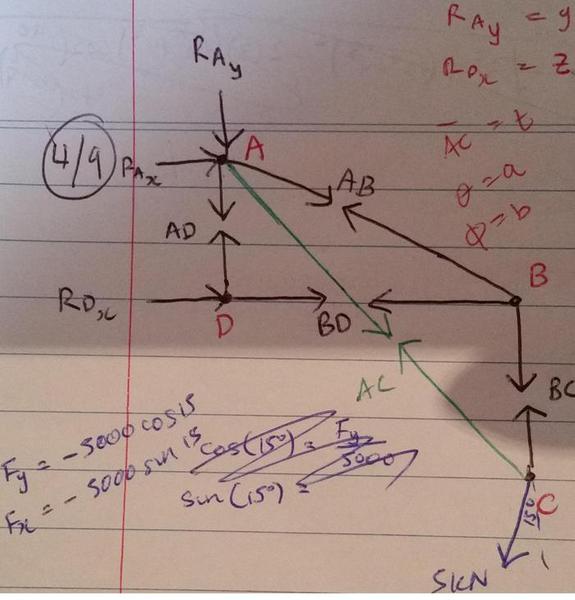 R_Ay = y
R_Dx = z
AC = t
θ = a
Q = b
R_Ay
4/9
R_Ax
A
AB
AD
R_Dx
D
BD
B
BC
AC
F_y = -5000 cos 15
F_x = -5000 sin 15
cos(15°) = F_y / 5000
sin(15°) =
15°
C
5KN